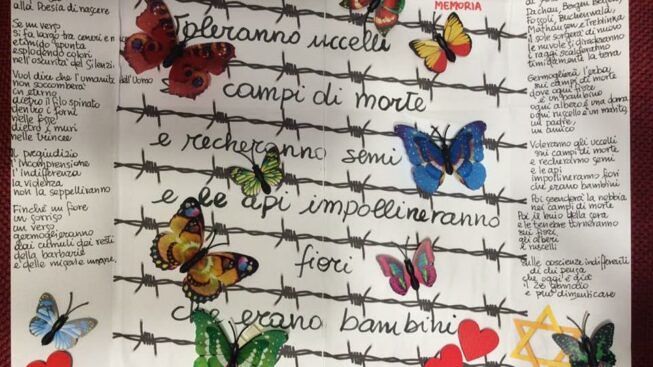 alla Poesia di nascere
Se un verso
si fa largo tra cenere e
e timido spunta
esplodendo colori
nell'oscurità dei silenzi.
Vuol dire che l'umanità dell'Uomo
non soccomberà
in eterno
dietro il filo spinato
dentro i forni
nelle fosse
dietro i muri
nelle trincee
Il pregiudizio
l'incomprensione
l'indifferenza
la violenza
non la seppelliranno
Finché un fiore
un sorriso
un verso
germoglieranno
dai cumuli dei resti
della barbarie
e delle miserie umane.
MEMORIA
Voleranno uccelli
campi di morte
e recheranno semi
e le api impollineranno
fiori
che erano bambini
Dachau, Bergen Belsen
Fossoli, Buchenwald
Mathausen e Treblinka
il sole sorgerà di nuovo
le nuvole si diraderanno
i raggi scalderanno
timidamente la terra
Germoglierà l'erba
sui campi di morte
dove ogni fiore
è un bambino
ogni albero è una donna
ogni ruscello è un marito,
un padre,
un amico
Voleranno gli uccelli
sui campi di morte
e recheranno semi
e le api
impollineranno fiori
che erano bambini
Poi scenderà la nebbia
nei campi di morte
Poi il buio della sera
e le tenebre torneranno
sui fiori
gli alberi
e ruscelli
Sulle coscienze indifferenti
di chi pensa
che oggi è già
il 28 gennaio
e può dimenticare